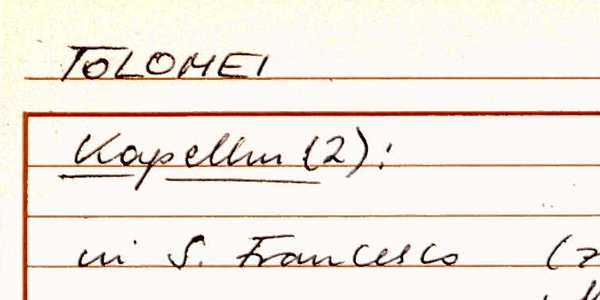 TOLOMEI
Kapellen (2):
in S. Francesco